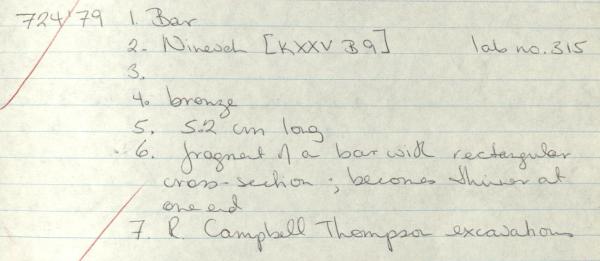 724'79 1. Bar
2. Nineveh [KXXV B9] lab no. 315
3.
4. bronze
5. 5.2 cm long
6. fragment of a bar with rectangular
cross-section; becomes thinner at
one end
7. R. Campbell Thompson excavations